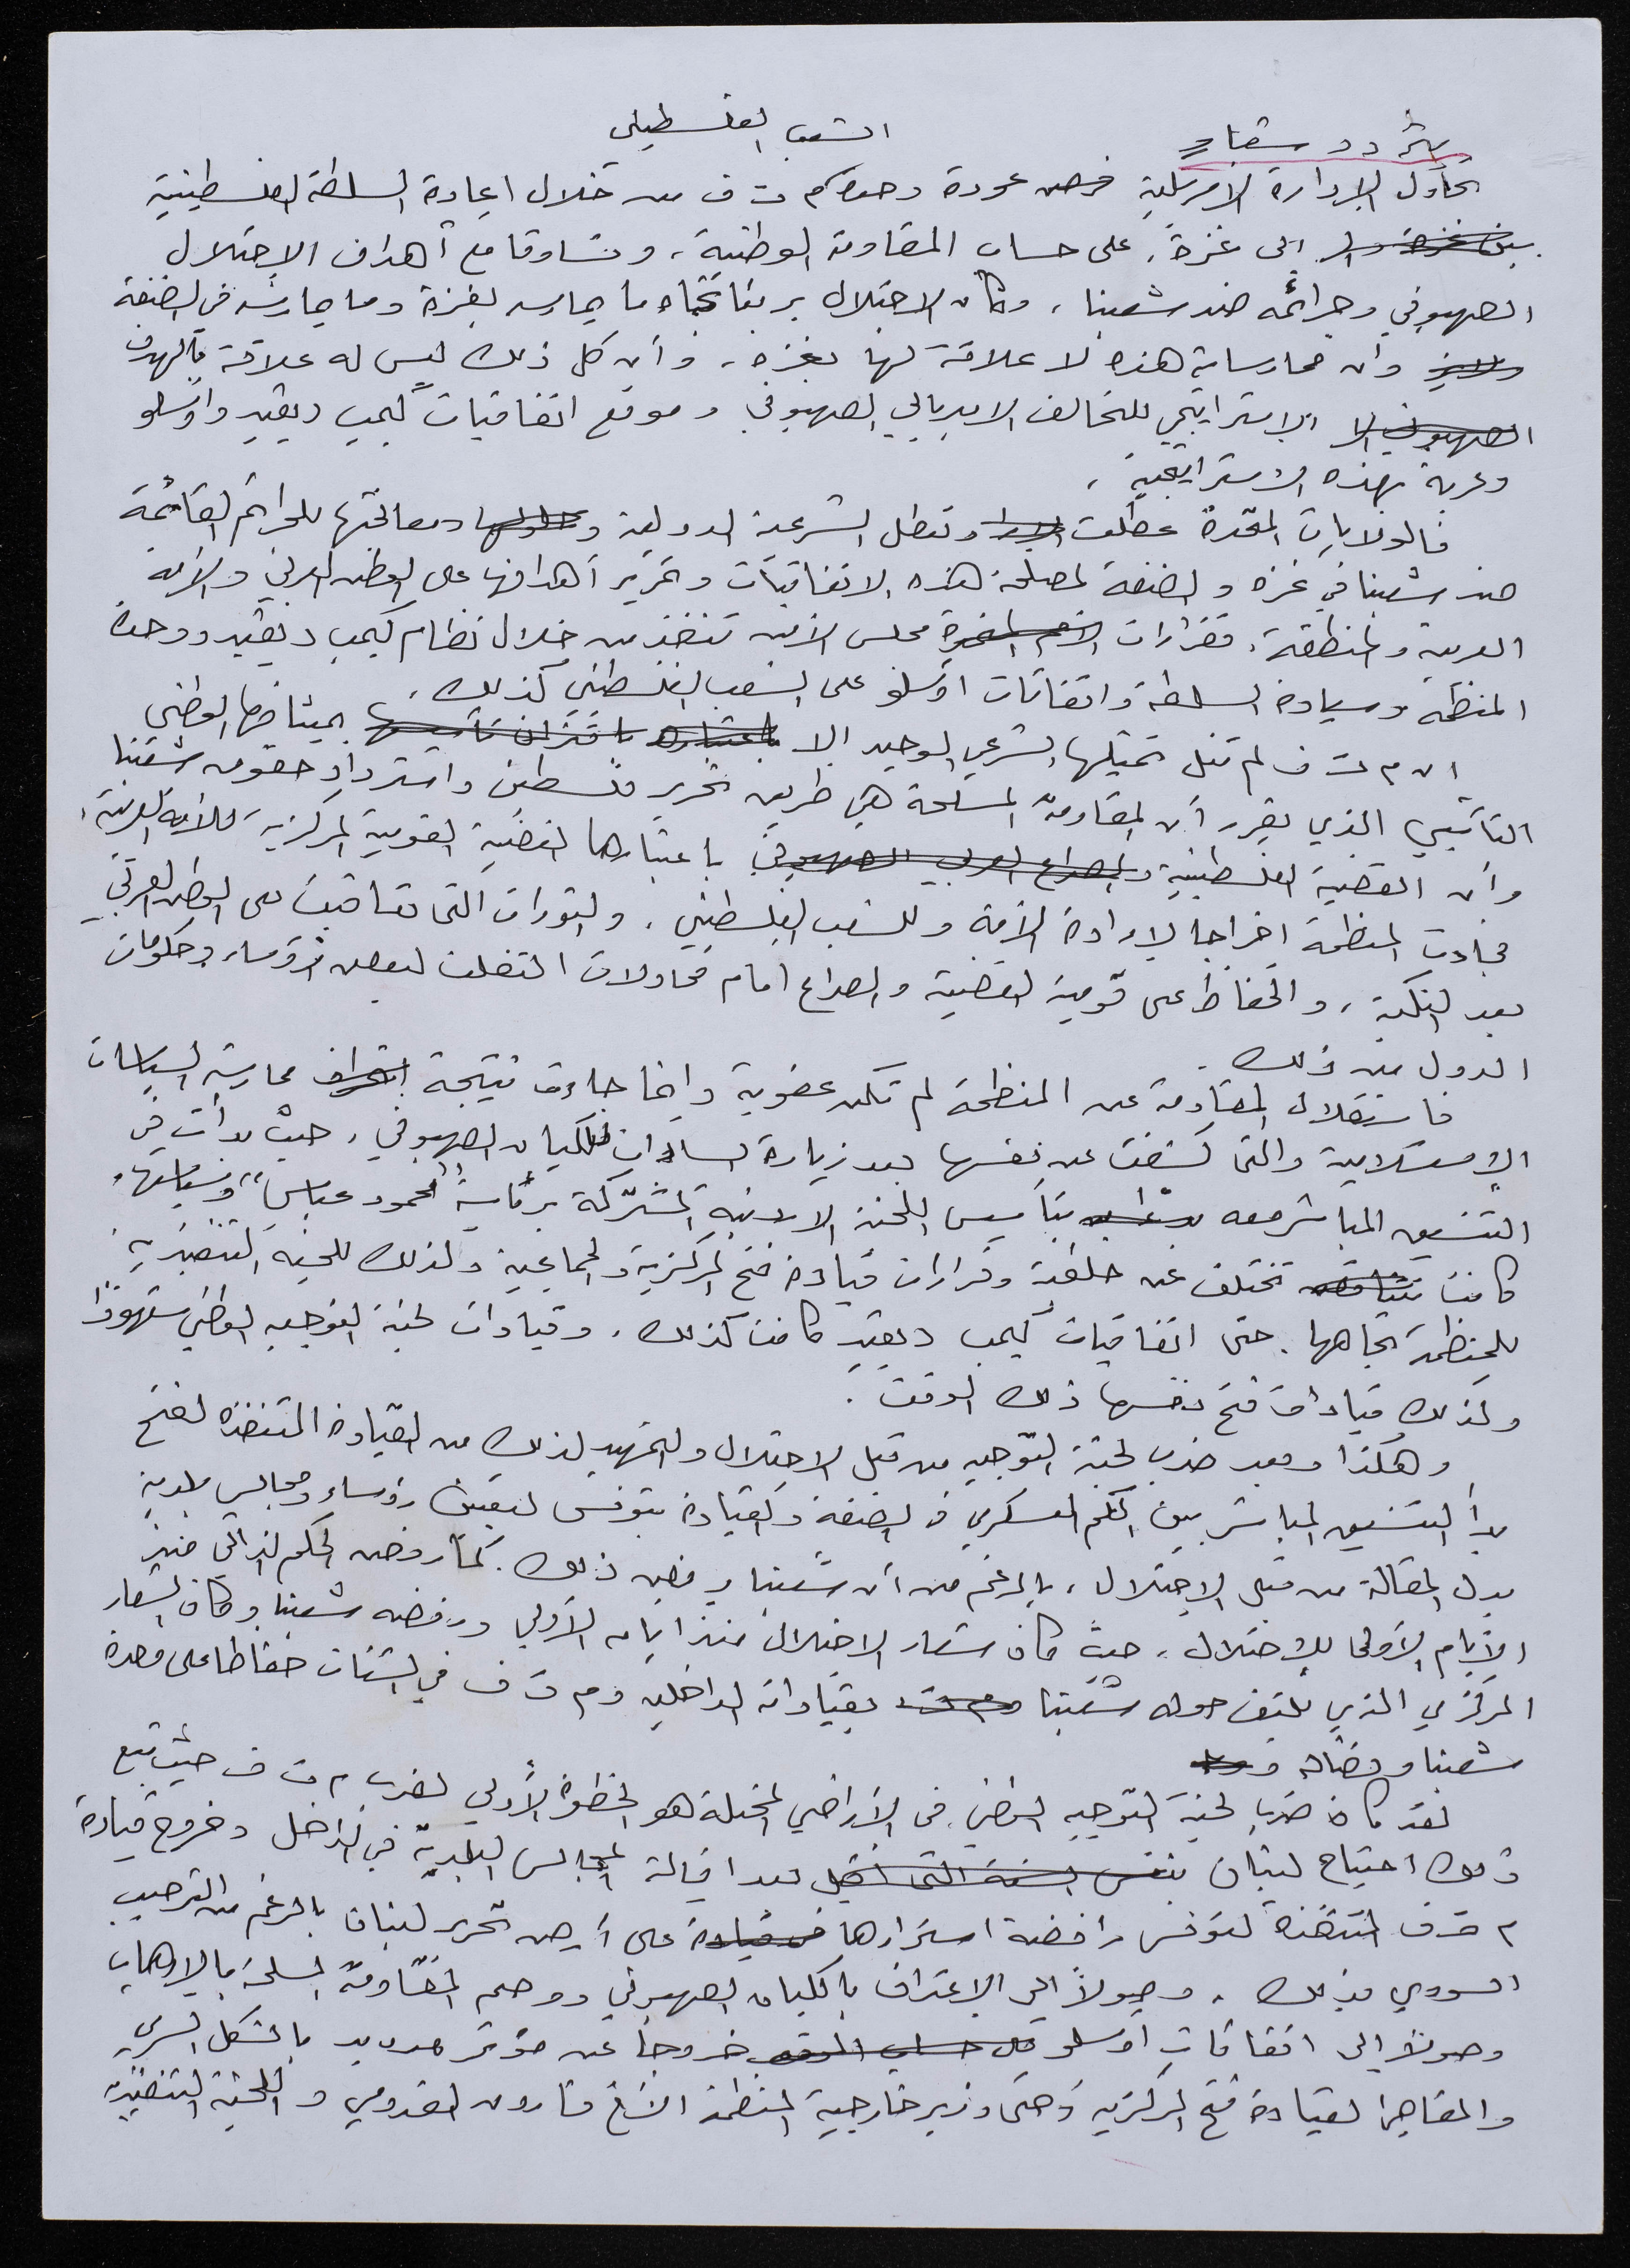 الشعب الفلسطيني
تحاول الإدارة الامريكية فرض عودة وحدة م ت ف من خلال اعادة السلطة الفلسطينية
الى غزة، على حساب المقاومة الوطنية، وتساوقا مع أهداف الاحتلال
الصهيوني وجرائمه ضد شعبنا، وكان الاحتلال بريئا تجاه ما يمارسه بغزة وما يمارسه في الضفة
وان ممارساته هذه لا علاقة لها بغزة، وأن كل ذلك ليس له علاقة بالهدف
الاستراتيجي للتحالف الامبريالي الصهيوني وموقع اتفاقيات كيمب ديفيد واوسلو
وعربة بهذه الاستراتيجية،
فالولايات المتحدة عطلت وتعطل الشرعية الدولية ومعالجتها للجرائم القائمة
ضد شعبنا في غزة والضفة لمصلحة هذه الاتفاقيات وتمرير أهدافها على الوطن العربي والأمة
العربية والمنطقة، فقرارات مجلس الأمن تنفذ من خلال نظام كيمب ديفيد ووحدة
المنظمة وسيادة السلطة واتفاقات اوسلو على الشعب الفلسطيني كذلك،
ان م ت ف لم تنل تمثيلها الشرعي الوحيد الا بميثاقها الوطني
التأسيسي الذي يقرر أن المقاومة المسلحة هي طريق تحرير فلسطين واسترداد حقوق شعبنا
وأن القضية الفلسطينية باعتبارها القضية القومية المركزية للأمة العربية،
فجاءت المنظمة اخراجا لارادة الأمة وللشعب الفلسطيني، والثورات التي تعاقبت على الوطن العربي
بعد النكبة، والحفاظ على قومية القضية والصراع امام محاولات التفلت لبعض رؤساء وحكومات
الدول من ذلك.
فاستقلال المقاومة عن المنظمة لم تكن عضوية وانما جاءت نتيجة ممارسة السياسات
الاستسلامية والتي كشفت عن نفسها بعد زيارة السادات للكيان الصهيوني، حيث بدأت في
التنسيق المباشر معه بتأسيس اللجنة الاردنية المشتركة برئاسة "محمود عباس" وسياستها،
كانت تختلف عن خلفية وقرارات قيادة فتح المركزية والجماعية وكذلك اللجنة التنفيذية
للمنظمة تجاهها. حتى اتفاقيات كيمب ديفيد كانت كذلك، وقيادات لجنة التوجيه الوطني شهودا
وكذلك قيادات فتح نفسها ذلك الوقت.
وهكذا وبعد ضرب لجنة التوجيه من قبل الاحتلال والتمهيد لذلك من القيادة المتنفذة لفتح
بدأ التنسيق المباشر بين الحكم العسكري في الضفة والقيادة بتونس لتعيين رؤساء ومجالس بلدية
بدل المقالة من قبل الاحتلال، بالرغم من أن شعبنا رفض ذلك. كما رفض الحكم الذاتي منذ
الأيام الأولى للاحتلال، حيث كان شعار الاحتلال منذ أيامه الأولى ورفضه شعبنا وكان الشعار
المركزي الذي يلتف حوله شعبنا بقياداته الداخلية وم ت ف في الشتات حفاظا على وحدة
شعبنا ونضاله
لقد كان ضرب لجنة التوجيه الوطني في الأراضي المحتلة هو الخطوة الأولى لضرب م ت ف حيث تبع
ذلك اجتياح لبنان بعد اقالة المجالس البلدية في الداخل وخروج قيادة
م ت ف المتنفذة لتونس رافضة استمرارها على أرض تحرير لبنان بالرغم من الترحيب
السوري بذلك، وصولاً الى الاعتراف بالكيان الصهيوني ووصم المقاومة المسلحة بالارهاب
وصولاً إلى اتفاقات اوسلو خروجا عن مؤتمر مدريد بالشكل السري
والمفاجئ لقيادة فتح المركزية وحتى وزير خارجية المنظمة الأخ فاروق القدومي واللجنة التنفيذية